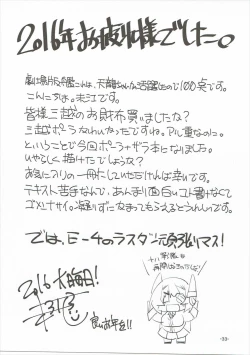 2016年お疲れ様でした。
劇場版艦これは、天龍ちゃんが活躍したので100点です。
こんにちは。末江です。
皆様三越のお財布買いましたか?
三越ポーラかわいかったですね。アル重なのに。
ということで今回ポーラ+ザラ本となりました。
いやらしく描けたでしょうか?
お気に入りの一冊にしていただければ幸いです。
テキスト苦手なんで、あんまり面白いコト書けなくて
ゴメンナサイ。懲りずになまってもらえるとうれしいです。
では、E-4のラスダン頑張りマス!
2016大晦日!
良いお年を!!
-33-